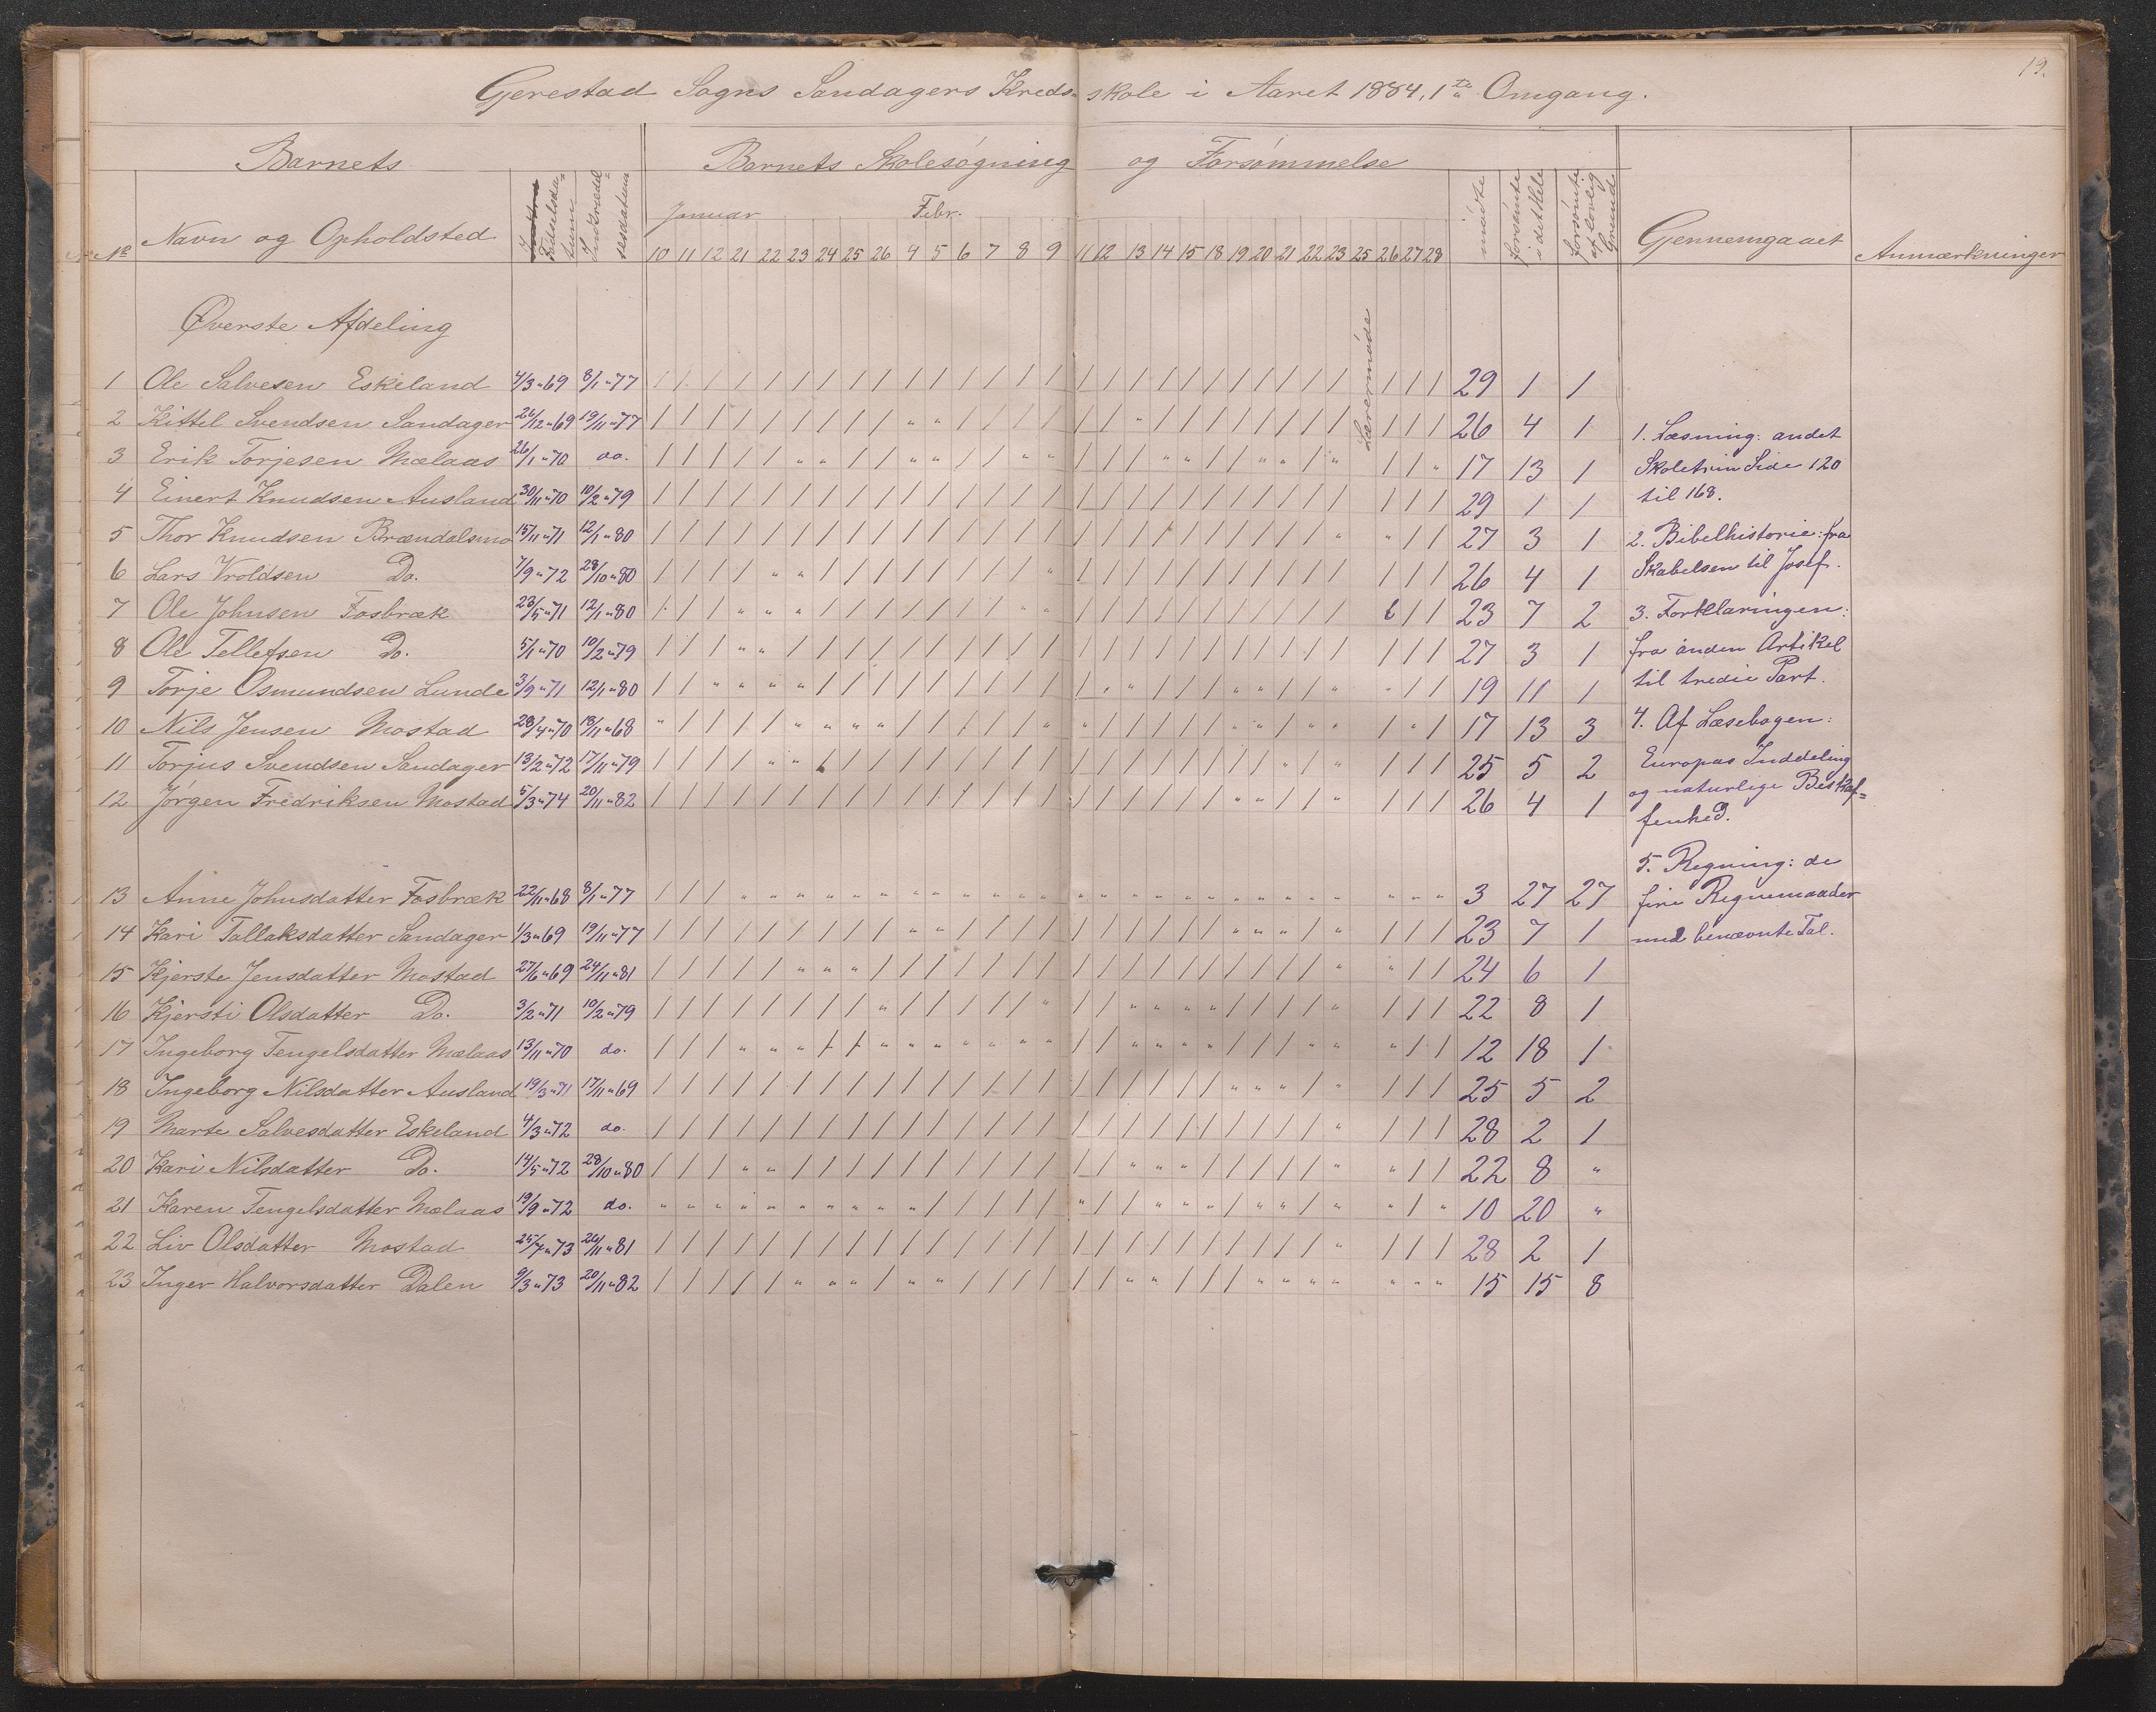 19.
Gjerestad Sogns Sandagers Kreds-skole i Aaret 1884, 1ste Omgang.
Barnets
Barnets Skolesøgning og Forsømmelse
Nr Navn og Opholdsted Fødselsdatum Indtrædelsesdatum Januar Febr. mødte forsømte i det Hele forsømte af lovlig Grund Gjennemgaaet Anmærkninger
10 11 12 21 22 23 24 25 26 4 5 6 7 8 9 11 12 13 14 15 18 19 20 21 22 23 25 26 27 28
Øverste Afdeling
Lærermøde
1 Ole Salvesen Eskeland 4/3 "69 8/1 "77 29 1 1
2 Kittel Svendsen Sandager 26/12 "69 19/11 "77 26 4 1
3 Erik Torjesen Mælaas 26/1 "70 do. 17 13 1
4 Einert Knudsen Ausland 30/11 "70 10/2 "79 29 1 1
5 Thor Knudsen Brændalsmo 15/11 "71 12/1 "80 27 3 1
6 Lars Vroldsen Do. 7/9 "72 28/10 "80 26 4 1
7 Ole Johnsen Fosbræk 23/5 "71 12/1 "80 23 7 2
8 Ole Tellefsen Do. 5/1 "70 10/2 "79 27 3 1
9 Torje Osmundsen Lunde 3/9 "71 12/1 "80 19 11 1
10 Nils Jensen Mostad 28/4 "70 18/11 "68 17 13 3
11 Torjus Svendsen Sandager 13/2 "72 17/11 "79 25 5 2
12 Jørgen Fredriksen Mostad 5/3 "74 20/11 "82 26 4 1
13 Anne Johnsdatter Fosbræk 22/11 "68 8/1 "77 3 27 27
14 Kari Tallaksdatter Sandager 1/3 "69 19/11 "77 23 7 1
15 Kjerste Jensdatter Mostad 27/6 "69 24/11 "81 24 6 1
16 Kjersti Olsdatter Do. 3/2 "71 10/2 "79 22 8 1
17 Ingeborg Tengelsdatter Mælaas 13/11 "70 do. 12 18 1
18 Ingeborg Nilsdatter Ausland 19/3 "71 17/11 "69 25 5 2
19 Marte Salvesdatter Eskeland 4/3 "72 do. 28 2 1
20 Kari Nilsdatter Do. 14/5 "72 28/10 "80 22 8 "
21 Karen Tengelsdatter Mælaas 19/9 "72 do. 10 20 "
22 Liv Olsdatter Mostad 25/7 "73 24/11 "81 28 2 1
23 Inger Halvorsdatter Dalen 9/3 "73 20/11 "82 15 15 8
1. Læsning: andet
Skoletrin Side 120
til 168.
2. Bibelhistorie: fra
Skabelsen til Josef.
3. Forklaringen:
fra anden Artikel
til tredie Part.
4. Af Læsebogen:
Europas Inddeling
og naturlige Beskaf=
fenhed.
5. Regning: de
fire Regnemaader
med benævnte Tal.